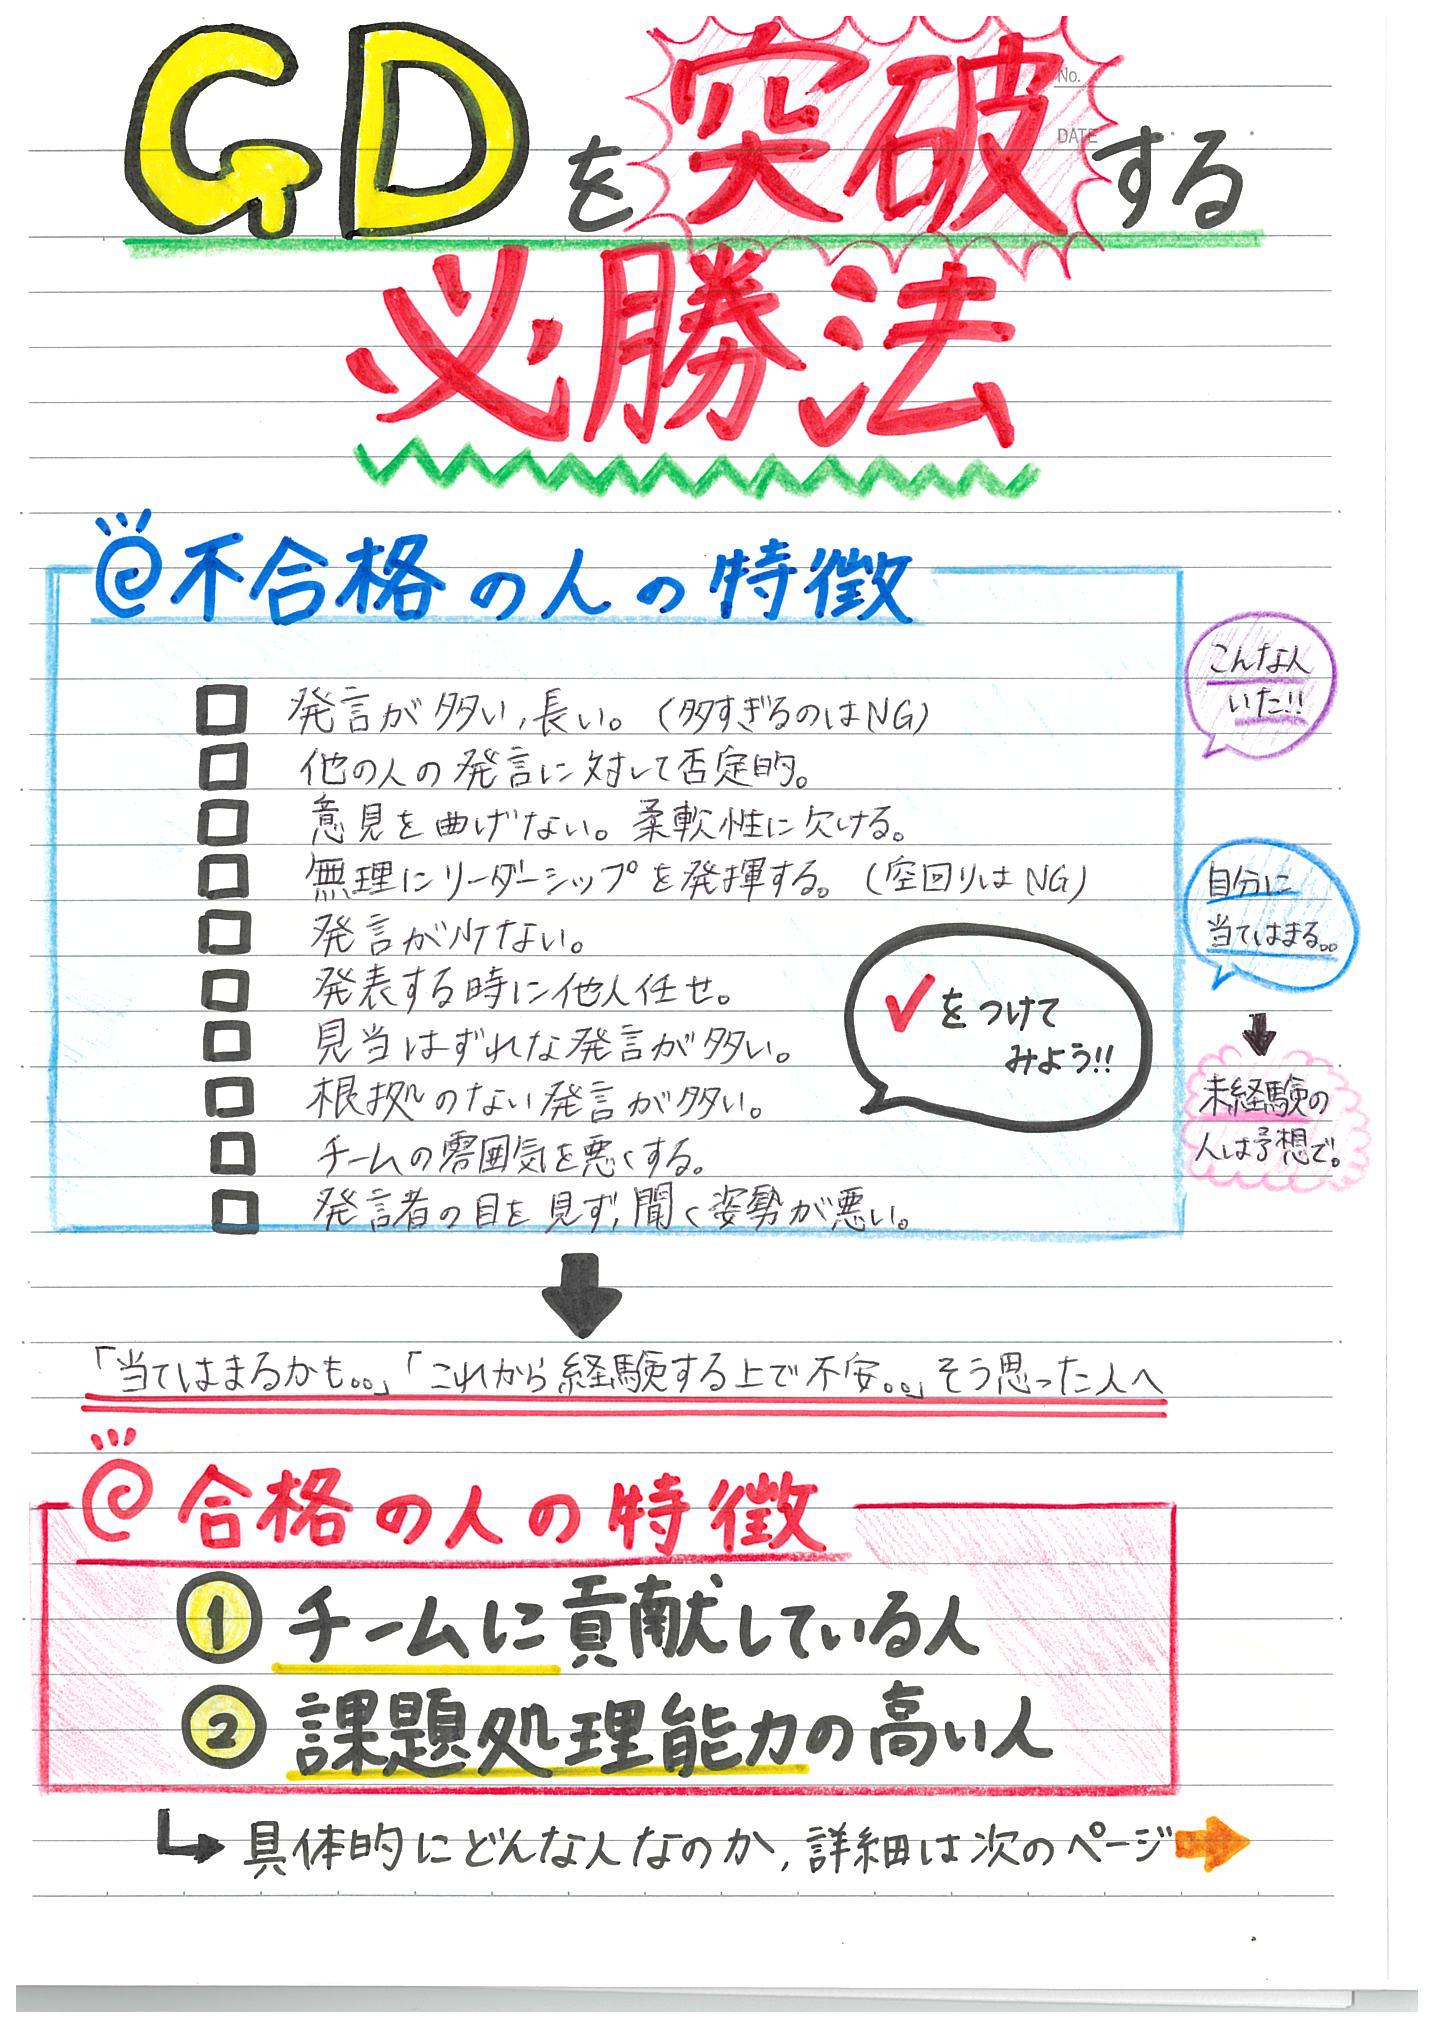 No.
DATE
GDを突破する
必勝法
@不合格の人の特徴
□ 発言が多い,長い。(多すぎるのはNG)
□ 他の人の発言に対して否定的。
□ 意見を曲げない。柔軟性に欠ける。
□ 無理にリーダーシップを発揮する。(空回りはNG)
□ 発言が少ない。
□ 発表する時に他人任せ。
□ 見当はずれな発言が多い。
□ 根拠のない発言が多い。
□ チームの雰囲気を悪くする。
□ 発言者の目を見ず,聞く姿勢が悪い。
✓をつけて
みよう!!
こんな人
いた!!
自分に
当てはまる。。
↓
未経験の
人は予想で。
「当てはまるかも。。」「これから経験する上で不安。。」そう思った人へ
@合格の人の特徴
① チームに貢献している人
② 課題処理能力の高い人
↳ 具体的にどんな人なのか,詳細は次のページ➡